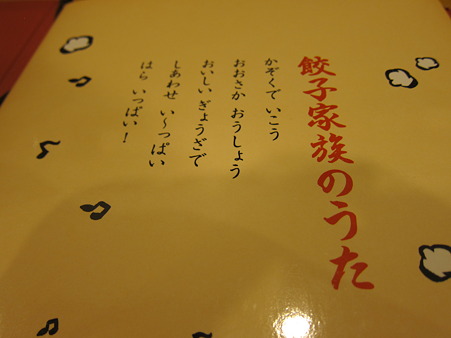 餃子家族のうた
かぞくで いこう
おおさか おうしょう
おいしい ぎょうざで
しあわせ い〜っぱい
はら いっぱい！